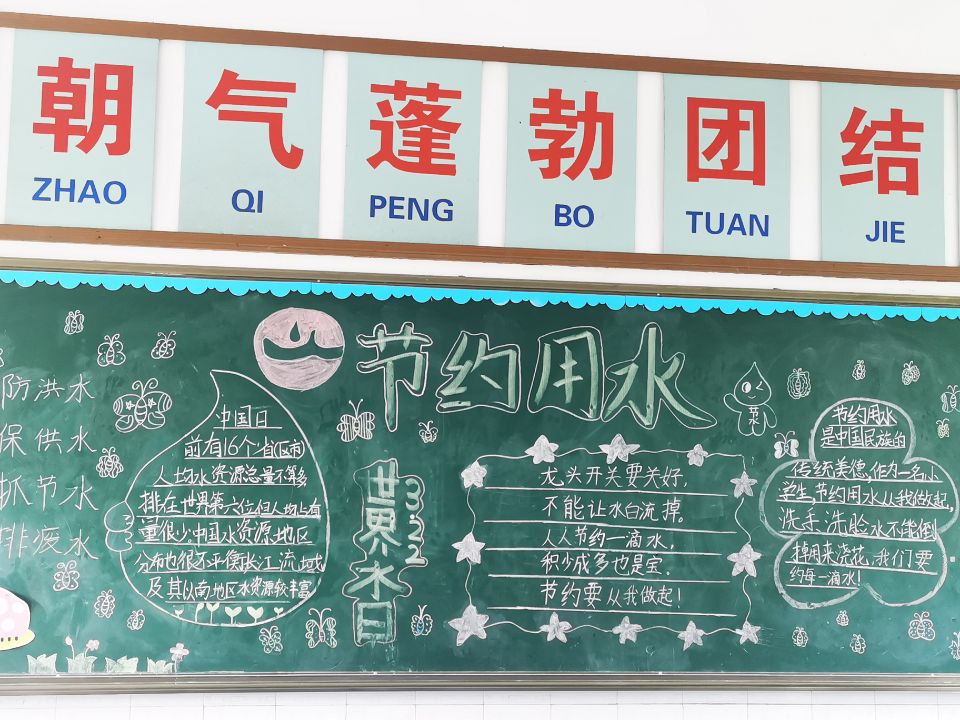 朝气蓬勃团结
ZHAO QI PENG BO TUAN JIE
节约用水
防洪水
保供水
抓节水
排疫水
中国日
前有16个省(区市)
人均水资源总量不够
排在世界第六位但人均占有
量很少中国水资源地区
分布也很不平衡长江流域
及其以南地区水资源较丰富
世界水日
322
龙头开关要关好,
不能让水白流掉。
人人节约一滴水,
积少成多也是宝。
节约要从我做起!
节水
节约用水
是中国民族的
传统美德,作为一名小
学生,节约用水从我做起,
洗手、洗脸水不能倒
掉用来浇花,我们要
约每一滴水!